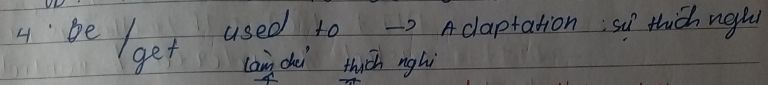 4. be / get used to -> Adaptation : sự thích nghi
làm chi thích nghi